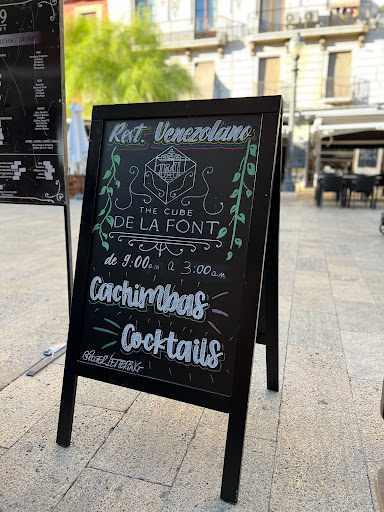 Rest. Venezolano
THE CUBE
DE LA FONT
de 9:00am a 3:00am
Cachimbas
Cocktails